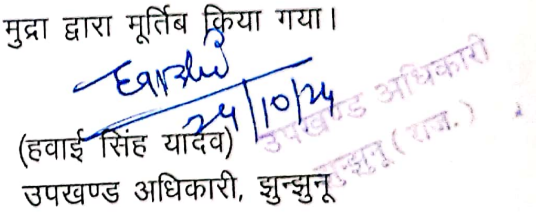 मुद्रा द्वारा मूर्तिब किया गया।
24/10/24
उपखण्ड अधिकारी
झुन्झुनू (राज.)
(हवाई सिंह यादव)
उपखण्ड अधिकारी, झुन्झुनू